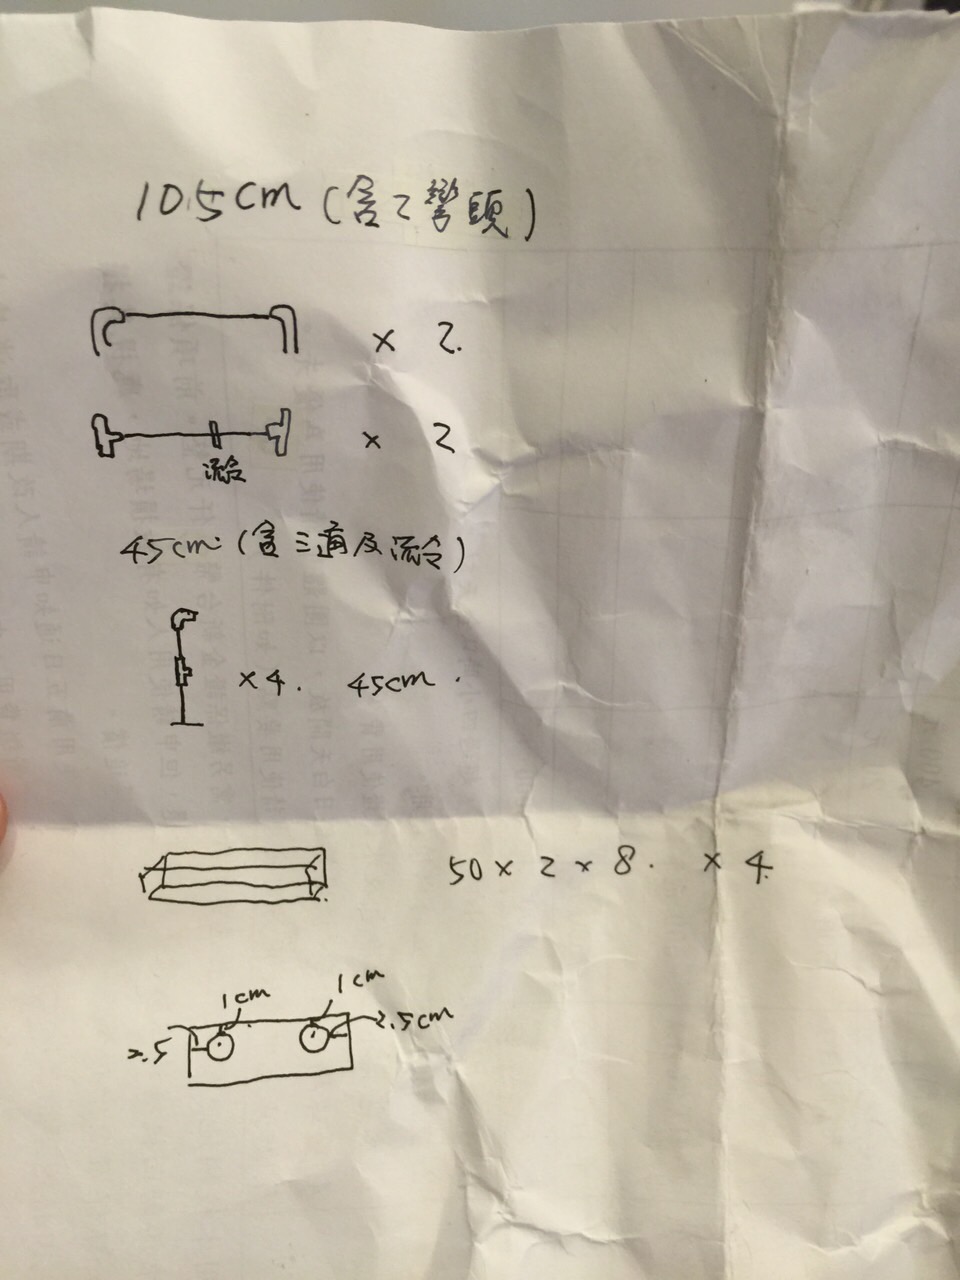 105cm (含2彎頭)
× 2.
× 2
流合
45cm. (含三通及流合)
×4. 45cm.
50 × 2 × 8. × 4.
1cm 1cm
2.5 2.5cm